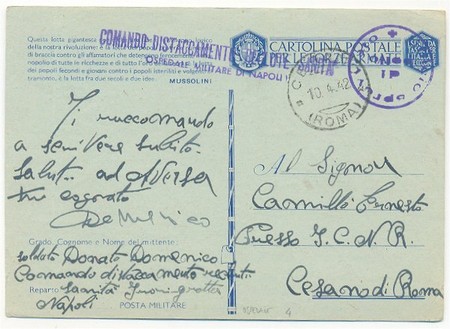 Questa lotta gigantesca
della nostra rivoluzione; è
di braccia contro gli affamatori che detengono
popolo di tutte le ricchezze e di tutto l'oro
dei popoli fecondi e giovani contro i popoli isteriliti
MUSSOLINI
COMANDO DISTACCAMENTO RECLUTE SANITÀ
OSPEDALE MILITARE DI NAPOLI
CARTOLINA POSTALE
PER LE FORZE ARMATE
10.4.42
(ROMA)
Ti raccomando
a scrivere subito.
Saluta ad Aversa
tuo cognato
Domenico
Grado, Cognome e Nome del mittente:
soldato Donato Domenico
Comando distaccamento reclute
Reparto Sanità Fuorigrotta
Napoli
POSTA MILITARE
Al Signor
Camillò Ernesto
Presso I.C.N.R.
Cesano di Roma
4